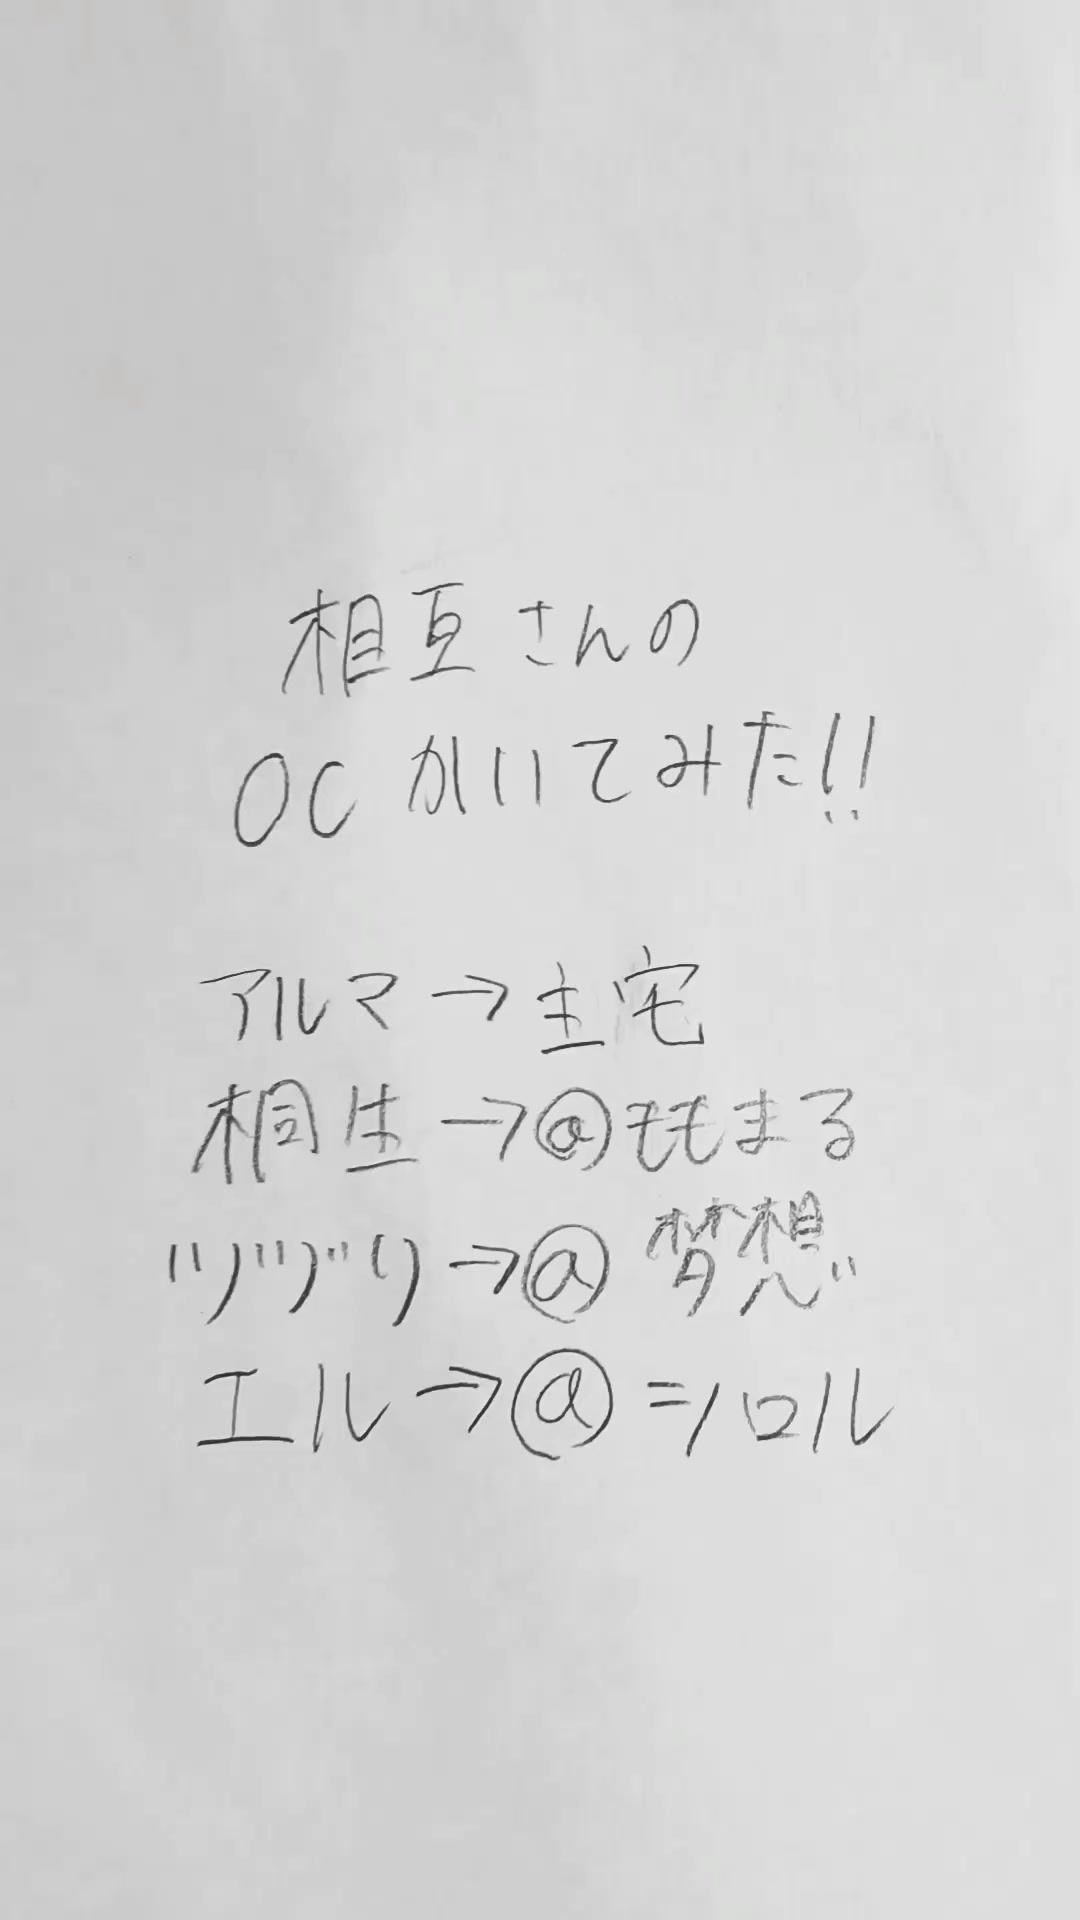 相互さんの
OC かいてみた!!
アルマ→主宅
桐生→@ももまる
ツヅリ→@夢想
エル→@ニノロル